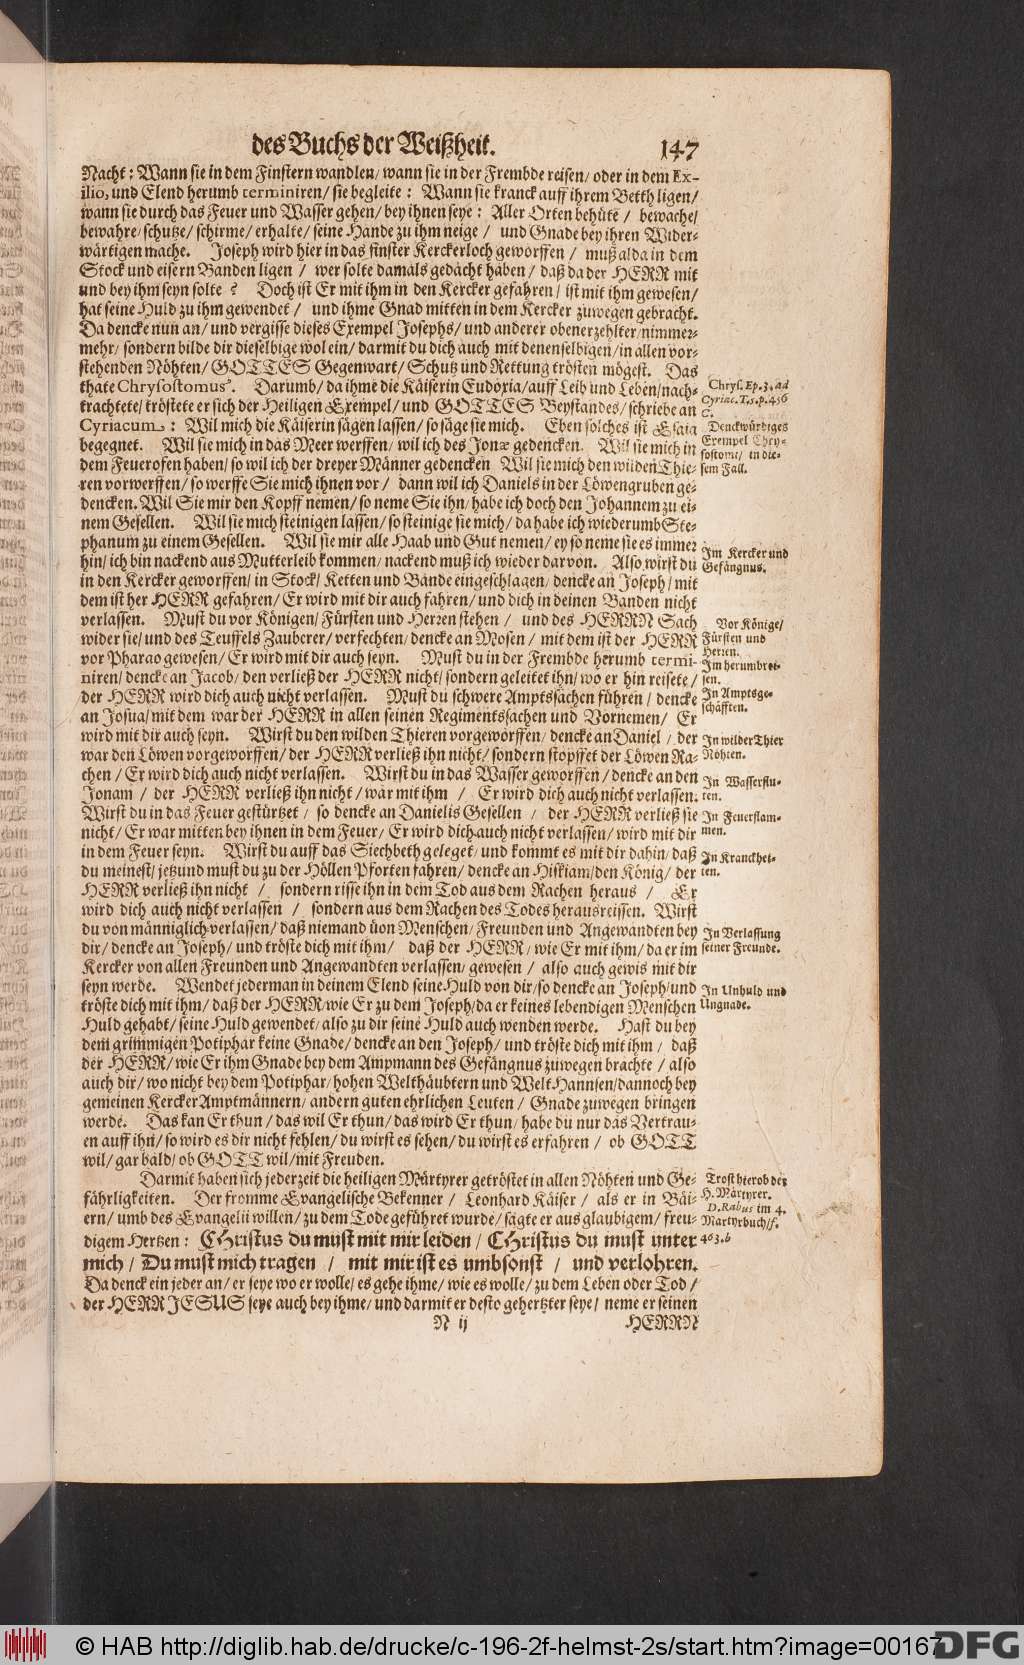 des Buchs der Weißheit.
147
Nacht: Wann sie in dem Finstern wandlen/ wann sie in der Frembde reisen/ oder in dem Ex-
ilio, und Elend herumb terminiren/ sie begleite: Wann sie kranck auff ihrem Betth ligen/
wann sie durch das Feuer und Wasser gehen/ bey ihnen seye: Aller Orten behüte/ bewache/
bewahre/ schutze/ schirme/ erhalte/ seine Hande zu ihm neige/ und Gnade bey ihren Wider-
wärtigen mache. Joseph wird hier in das finster Kerckerloch geworffen/ muß alda in dem
Stock und eisern Banden ligen/ wer solte damals gedacht haben/ daß da der HERR mit
und bey ihm seyn solte? Doch ist Er mit ihm in den Kercker gefahren/ ist mit ihm gewesen/
hat seine Huld zu ihm gewendet/ und ihme Gnad mitten in dem Kercker zuwegen gebracht.
Da dencke nun an/ und vergisse dieses Exempel Josephs/ und anderer obenerzehlter/ nimmer-
mehr/ sondern bilde dir dieselbige wol ein/ darmit du dich auch mit denenselbigen/ in allen vor-
stehenden Nöhten/ GOTTES Gegenwart/ Schutz und Rettung trösten mögest. Das
thate Chrysostomus. Darumb/ da ihme die Käiserin Eudoxia/ auff Leib und Leben/ nach-
trachtete/ tröstete er sich der Heiligen Exempel/ und GOTTES Beystandes/ schriebe an
Cyriacum: Wil mich die Käiserin sägen lassen/ so säge sie mich. Eben solches ist Esaia
begegnet. Wil sie mich in das Meer werffen/ wil ich des Jonæ gedencken. Wil sie mich in
dem Feuerofen haben/ so wil ich der dreyer Männer gedencken Wil sie mich den wilden Thie-
ren vorwerffen/ so werffe Sie mich ihnen vor/ dann wil ich Daniels in der Löwengruben ge-
dencken. Wil Sie mir den Kopff nemen/ so neme Sie ihn/ habe ich doch den Johannem zu ei-
nem Gesellen. Wil sie mich steinigen lassen/ so steinige sie mich/ da habe ich wiederumb Ste-
phanum zu einem Gesellen. Wil sie mir alle Haab und Gut nemen/ ey so neme sie es immer
hin/ ich bin nackend aus Mutterleib kommen/ nackend muß ich wieder darvon. Also wirst du
in den Kercker geworffen/ in Stock/ Ketten und Bande eingeschlagen/ dencke an Joseph/ mit
dem ist her HERR gefahren/ Er wird mit dir auch fahren/ und dich in deinen Banden nicht
verlassen. Must du vor Königen/ Fürsten und Herzen stehen/ und des HERRN Sach
wider sie/ und des Teuffels Zauberer/ verfechten/ dencke an Mosen/ mit dem ist der HERR
vor Pharao gewesen/ Er wird mit dir auch seyn. Must du in der Frembde herumb termi-
niren/ dencke an Jacob/ den verließ der HERR nicht/ sondern geleitet ihn/ wo er hin reisete/
der HERR wird dich auch nicht verlassen. Must du schwere Amptssachen führen/ dencke
an Josua/ mit dem war der HERR in allen seinen Regimentssachen und Vornemen/ Er
wird mit dir auch seyn. Wirst du den wilden Thieren vorgeworffen/ dencke an Daniel/ der
war den Löwen vorgeworffen/ der HERR verließ ihn nicht/ sondern stopffet der Löwen Ra-
chen/ Er wird dich auch nicht verlassen. Wirst du in das Wasser geworffen/ dencke an den
Jonam/ der HERR verließ ihn nicht/ war mit ihm/ Er wird dich auch nicht verlassen.
Wirst du in das Feuer gestürtzet/ so dencke an Danielis Gesellen/ der HERR verließ sie
nicht/ Er war mitten bey ihnen in dem Feuer/ Er wird dich auch nicht verlassen/ wird mit dir
in dem Feuer seyn. Wirst du auff das Siechbeth geleget/ und kommt es mit dir dahin/ daß
du meinest/ jetzund must du zu der Höllen Pforten fahren/ dencke an Hiskiam/ den König/ der
HERR verließ ihn nicht/ sondern risse ihn in dem Tod aus dem Rachen heraus/ Er
wird dich auch nicht verlassen/ sondern aus dem Rachen des Todes herausreissen. Wirst
du von männiglich verlassen/ daß niemand von Menschen/ Freunden und Angewandten bey
dir/ dencke an Joseph/ und tröste dich mit ihm/ daß der HERR/ wie Er mit ihm/ da er im
Kercker von allen Freunden und Angewandten verlassen/ gewesen/ also auch gewis mit dir
seyn werde. Wendet jederman in deinem Elend seine Huld von dir/ so dencke an Joseph/ und
tröste dich mit ihm/ daß der HERR/ wie Er zu dem Joseph/ da er keines lebendigen Menschen
Huld gehabt/ seine Huld gewendet/ also zu dir seine Huld auch wenden werde. Hast du bey
dem grimmigen Potiphar keine Gnade/ dencke an den Joseph/ und tröste dich mit ihm/ daß
der HERR/ wie Er ihm Gnade bey dem Ampmann des Gefängnus zuwegen brachte/ also
auch dir/ wo nicht bey dem Potiphar/ hohen Welthäubtern und Welt Hannsen/ dannoch bey
gemeinen Kercker Amptmännern/ andern guten ehrlichen Leuten/ Gnade zuwegen bringen
werde. Das kan Er thun/ das wil Er thun/ das wird Er thun/ habe du nur das Vertrau-
en auff ihn/ so wird es dir nicht fehlen/ du wirst es sehen/ du wirst es erfahren/ ob GOTT
wil/ gar bald/ ob GOTT wil/ mit Freuden.
Darmit haben sich jederzeit die heiligen Märtyrer getröstet in allen Nöhten und Ge-
fährligkeiten. Der fromme Evangelische Bekenner/ Leonhard Käiser/ als er in Bäi-
ern/ umb des Evangelii willen/ zu dem Tode geführet wurde/ sagte er aus glaubigem/ freu-
digem Hertzen: CHristus du must mit mir leiden/ CHristus du must unter
mich/ Du must mich tragen/ mit mir ist es umbsonst/ und verlohren.
Da denck ein jeder an/ er seye wo er wolle/ es gehe ihme/ wie es wolle/ zu dem Leben oder Tod/
der HERR JESUS seye auch bey ihme/ und darmit er desto gehertzter seye/ neme er seinen
N ij
HERRN
Chrys. Ep. 3. ad
Cyriac. T. 5. p. 456
C.
Denckwürdiges
Exempel Chry-
sostomi/ in die-
sem Fall.
Im Kercker und
Gefängnus.
Vor Könige/
Fürsten und
Herren.
Im herumbrei-
sen.
In Amptsge-
schäfften.
In wilder Thier
Nöhten.
In Wasserflu-
ten.
In Feuerflam-
men.
In Kranckhei-
ten.
In Verlassung
seiner Freunde.
In Unhuld und
Ungnade.
Trost hierob der
H. Märtyrer.
D. Rabus im 4.
Martyrbuch/ f.
463. b
© HAB http://diglib.hab.de/drucke/c-196-2f-helmst-2s/start.htm?image=00167
DFG